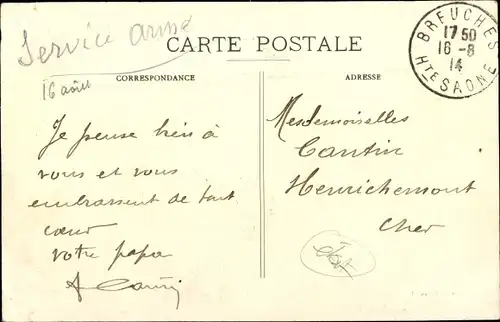 Service armé
CARTE POSTALE
CORRESPONDANCE
ADRESSE
BREUCHES
17 50
16 - 8
14
HTE SAONE
16 août
Je pense bien à
vous et vous
embrassent de tout
cœur
votre papa
Mesdemoiselles
Cantin
Henrichemont
Cher